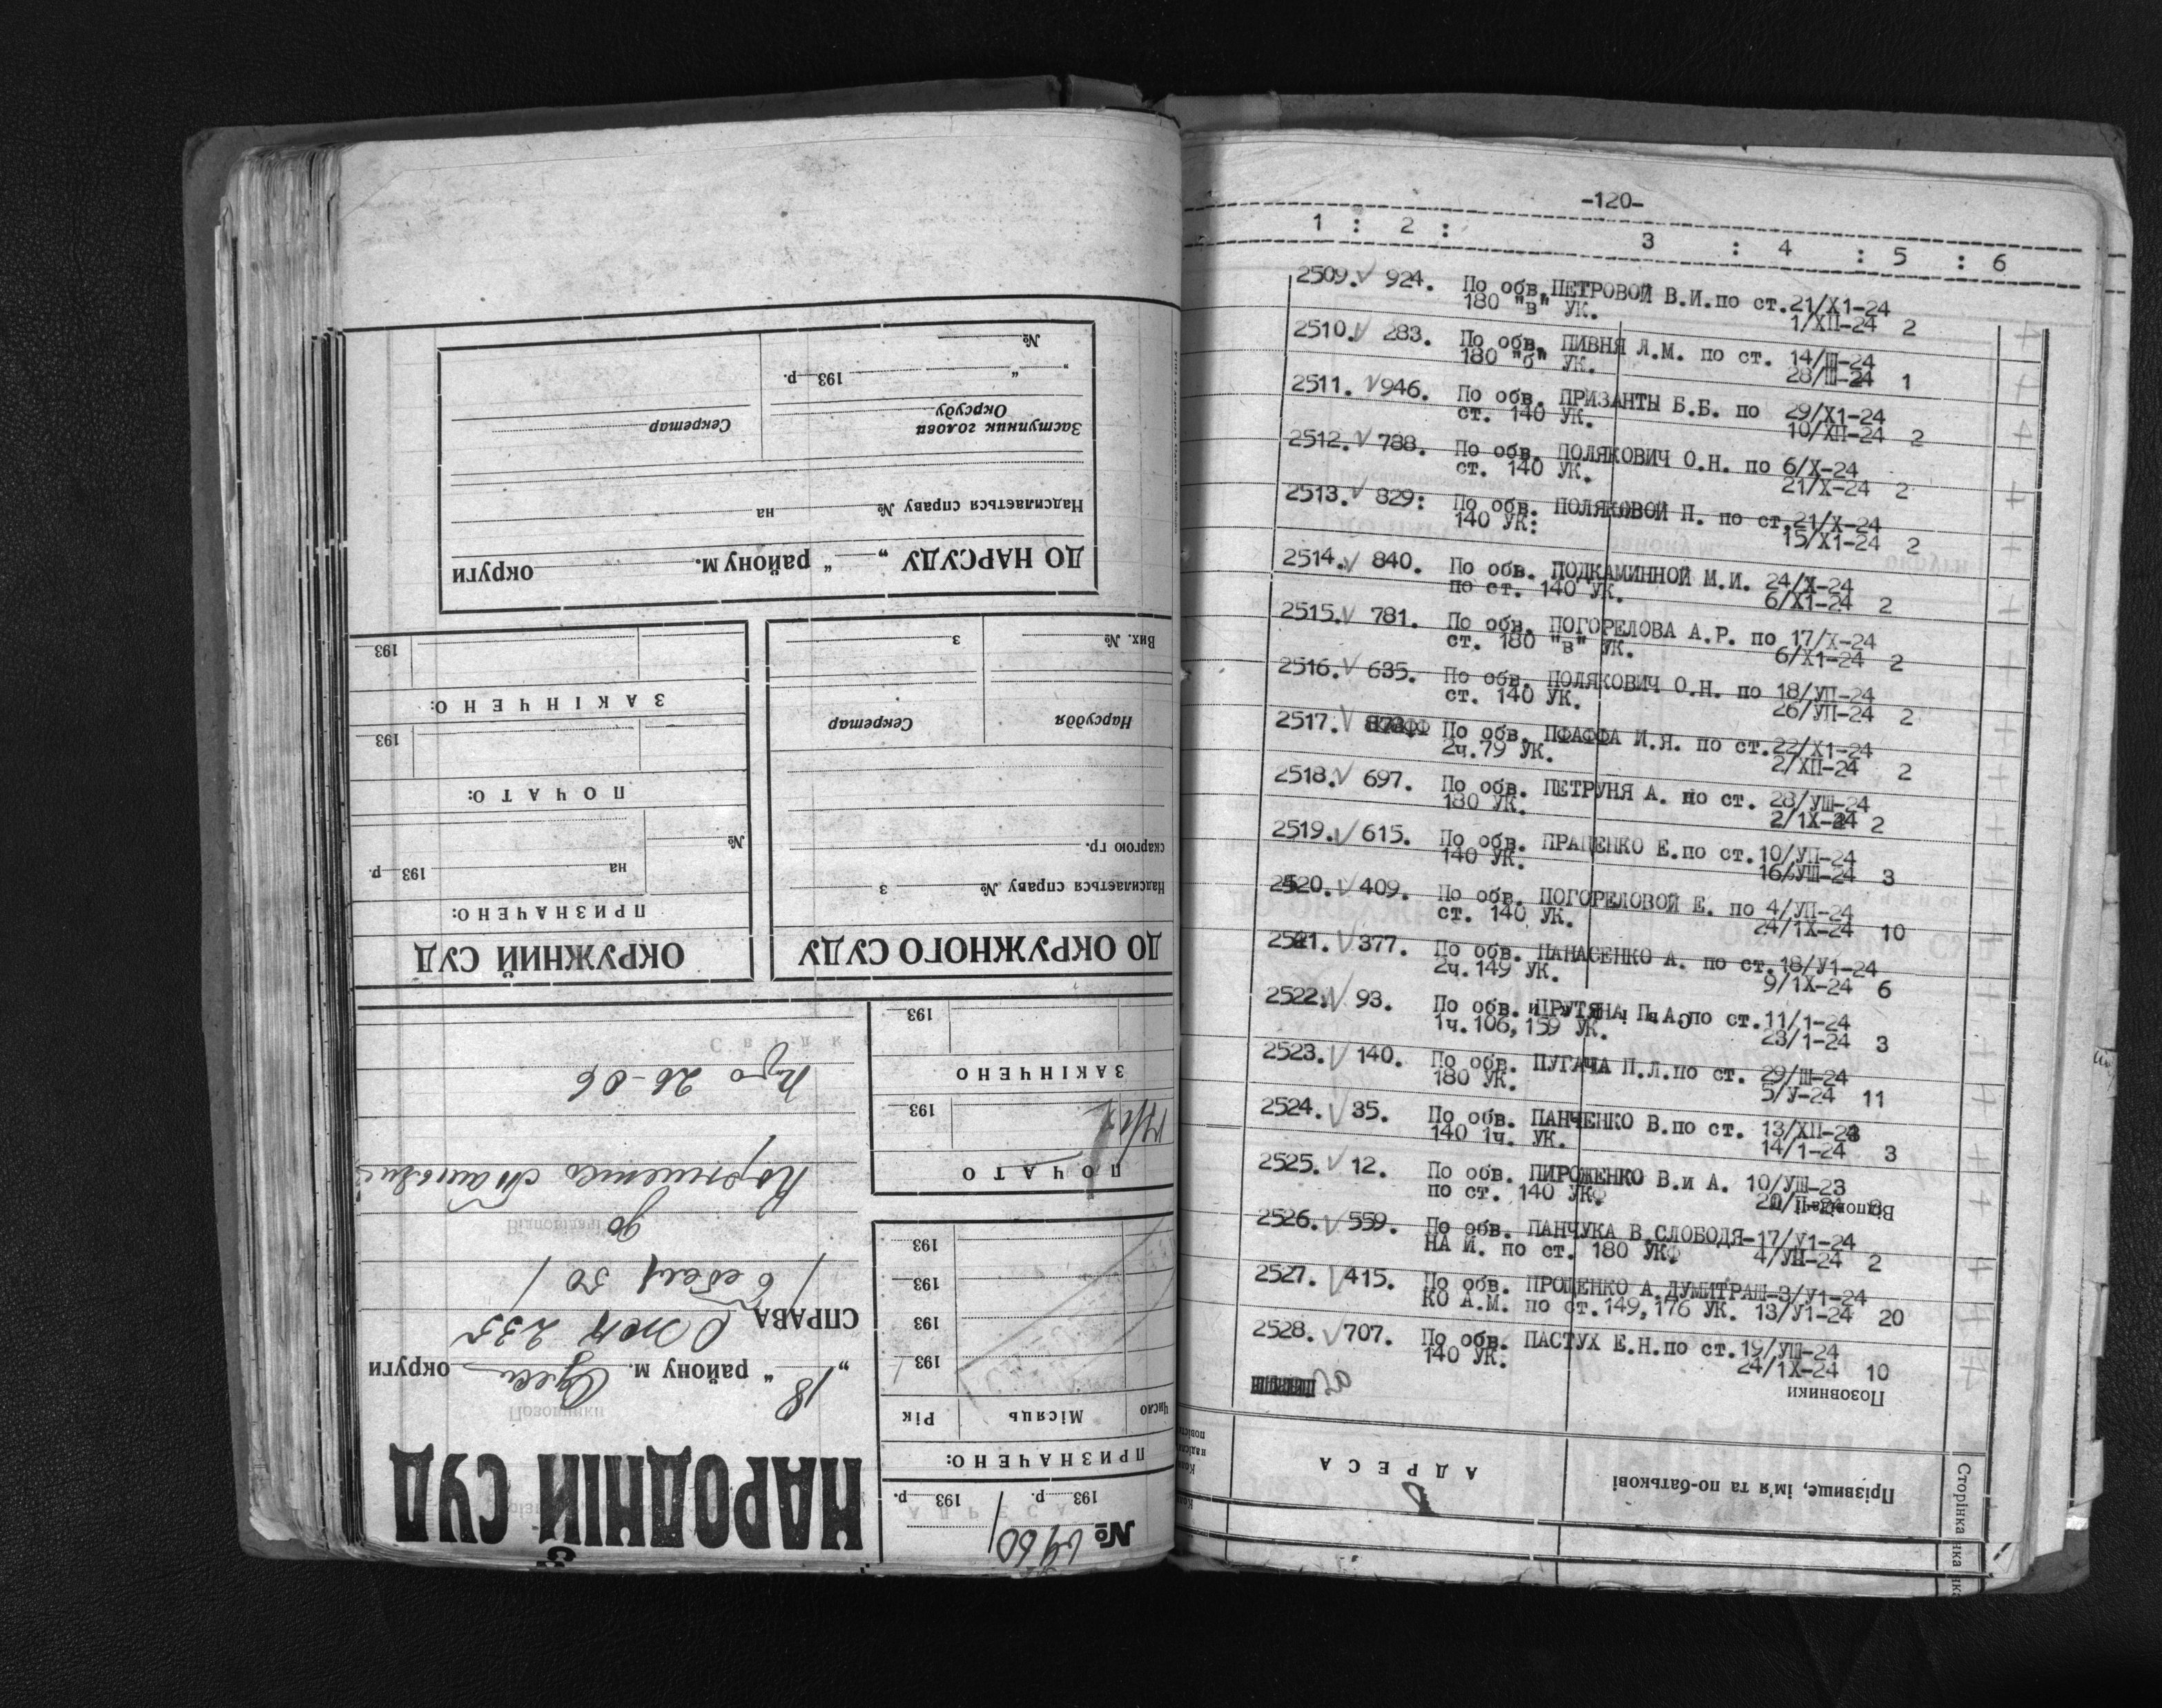 -120-
1 : 2 : 3 : 4 : 5 : 6
2509. 924. По обв. ПЕТРОВОЙ В.И.по ст.21/Х1-24
180 "в" УК. 1/ХП-24 2
2510. 283. По обв. ПИВНЯ Л.М. по ст. 14/Ш-24
180 "б" УК. 28/Ш-24 1
2511. 946. По обв. ПРИЗАНТЫ Б.Б. по 29/Х1-24
ст. 140 УК. 10/ХП-24 2
2512. 788. По обв. ПОЛЯКОВИЧ О.Н. по 6/Х-24
ст. 140 УК. 21/Х-24 2
2513. 829: По обв. ПОЛЯКОВОЙ П. по ст.21/Х-24
140 УК: 15/Х1-24 2
2514. 840. По обв. ПОДКАМИННОЙ М.И. 24/Х-24
по ст. 140 УК. 6/Х1-24 2
2515. 781. По обв. ПОГОРЕЛОВА А.Р. по 17/Х-24
ст. 180 "в" УК. 6/Х1-24 2
2516. 635. По обв. ПОЛЯКОВИЧ О.Н. по 18/УП-24
ст. 140 УК. 26/УП-24 2
2517. По обв. ПФАФФА И.Я. по ст.22/Х1-24
2ч.79 УК. 2/ХП-24 2
2518. 697. По обв. ПЕТРУНЯ А. по ст. 28/УШ-24
180 УК. 2/1Х-24 2
2519. 615. По обв. ПРАЦЕНКО Е.по ст.10/УП-24
140 УК. 16/УШ-24 3
2520. 409. По обв. ПОГОРЕЛОВОЙ Е. по 4/УП-24
ст. 140 УК. 24/1Х-24 10
2521. 377. По обв. ПАНАСЕНКО А. по ст.18/У1-24
2ч.149 УК. 9/1Х-24 6
2522. 93. По обв. ПРУТЯНА П.А.по ст.11/1-24
1ч.106,159 УК. 23/1-24 3
2523. 140. По обв. ПУГАЧА П.Л.по ст. 29/Ш-24
180 УК. 5/У-24 11
2524. 35. По обв. ПАНЧЕНКО В.по ст. 13/ХП-23
140 1ч. УК. 14/1-24 3
2525. 12. По обв. ПИРОЖЕНКО В.и А. 10/УШ-23
по ст. 140 УК.
Відповідачі
2526. 559. По обв. ПАНЧУКА В.СЛОБОДЯ-17/У1-24
НА И. по ст. 180 УК 4/УП-24 2
2527. 415. По обв. ПРОЦЕНКО А.ДУМИТРАШ-3/У1-24
КО А.М. по ст.149,176 УК. 13/У1-24 20
2528. 707. По обв. ПАСТУХ Е.Н.по ст.19/УШ-24
140 УК. 24/1Х-24 10
Позовники
АДРЕСА
Прізвище, ім'я та по-батькові
Сторінка
№
193 р. 193 р.
ПРИЗНАЧЕНО:
Число Місяць Рік
193
193
193
193
ПОЧАТО
193
ЗАКІНЧЕНО
193
НАРОДНІЙ СУД
„18" району м. округи
СПРАВА
235
ДО ОКРУЖНОГО СУДУ
Надсилається справу № з
скаргою гр.
Нарсуддя Секретар
Вих. № з
ОКРУЖНИЙ СУД
ПРИЗНАЧЕНО:
на 193 р.
№
ПОЧАТО:
193
ЗАКІНЧЕНО:
193
ДО НАРСУДУ „ " району м. округи
Надсилається справу № на
Заступник голови
Окрсуду
Секретар
„ " 193 р.
№